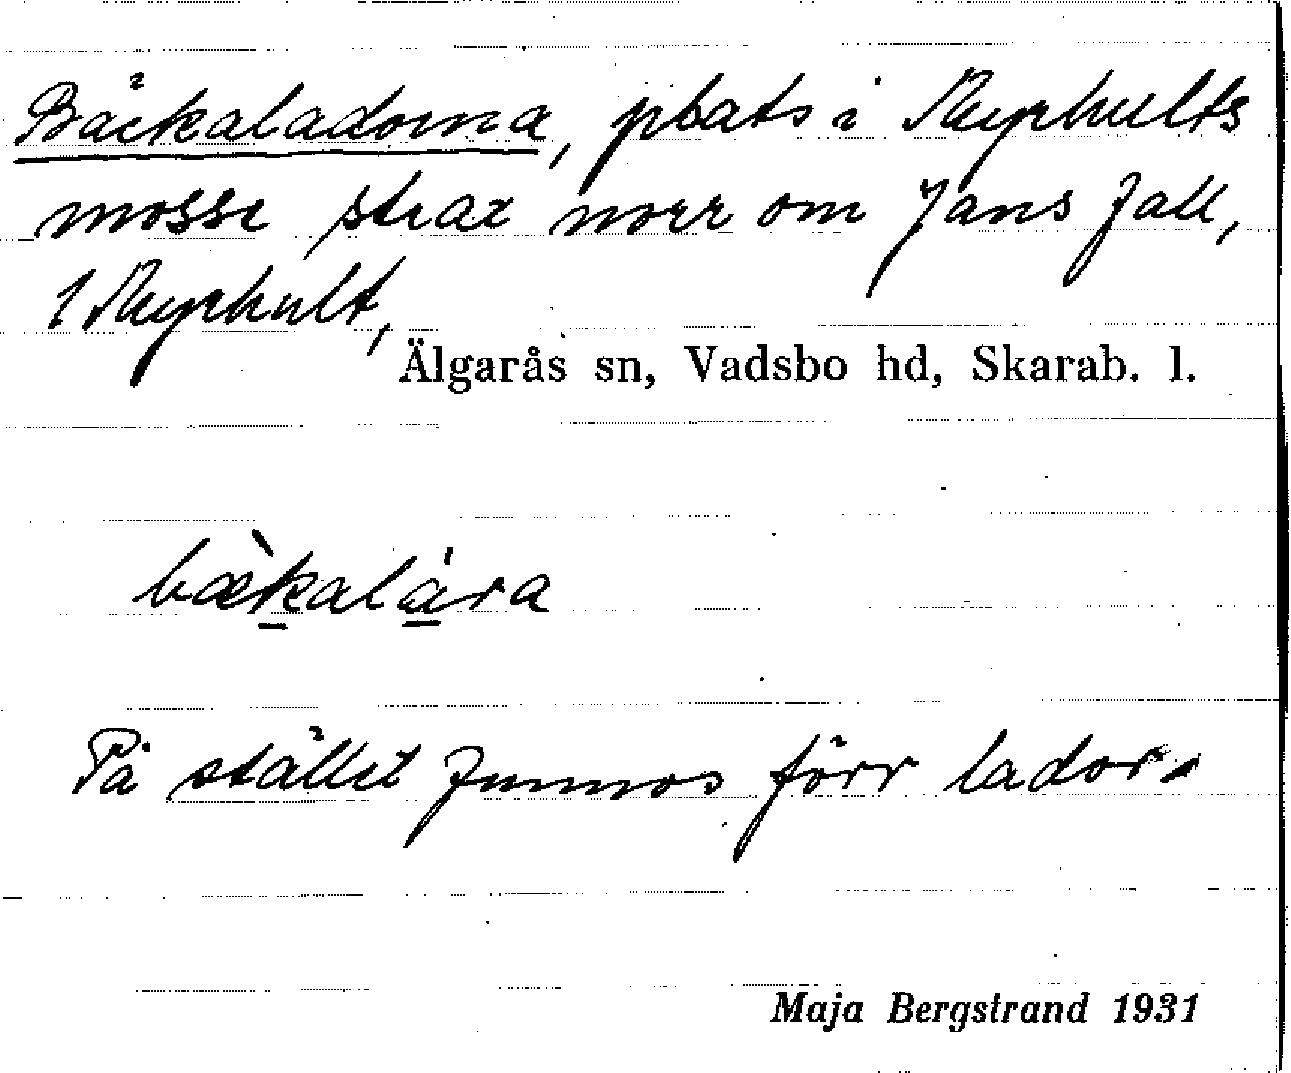 Bäckaladorna, plats i Myrhults
mosse strax norr om Jans fall,
1 Myrhult,
Älgarås sn, Vadsbo hd, Skarab. l.
bæ̀kalára
På stället funnos förr lador.
Maja Bergstrand 1931